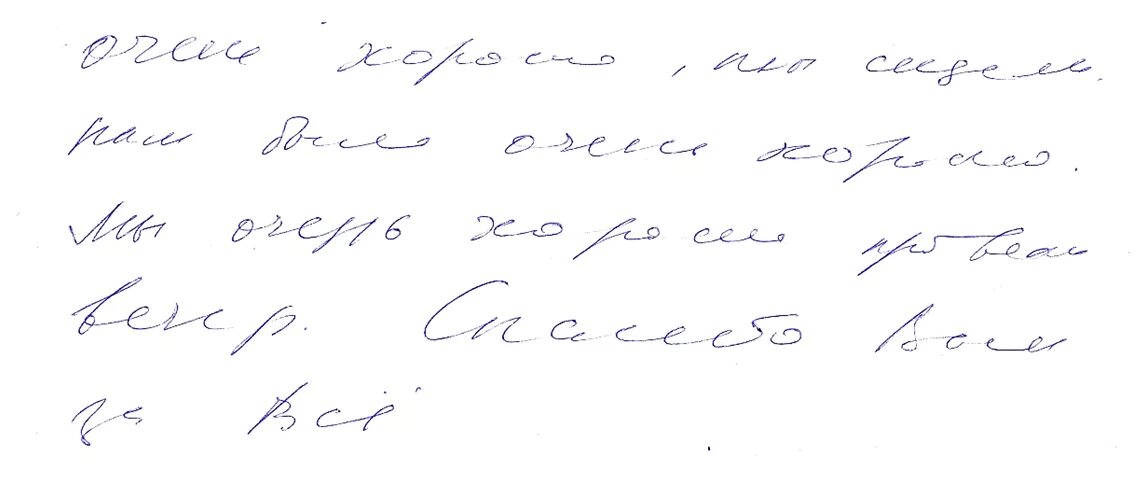 очень хорошо, мы сидели.
нам было очень хорошо.
Мы очень хорошо провели
вечер. Спасибо Вам
за всё